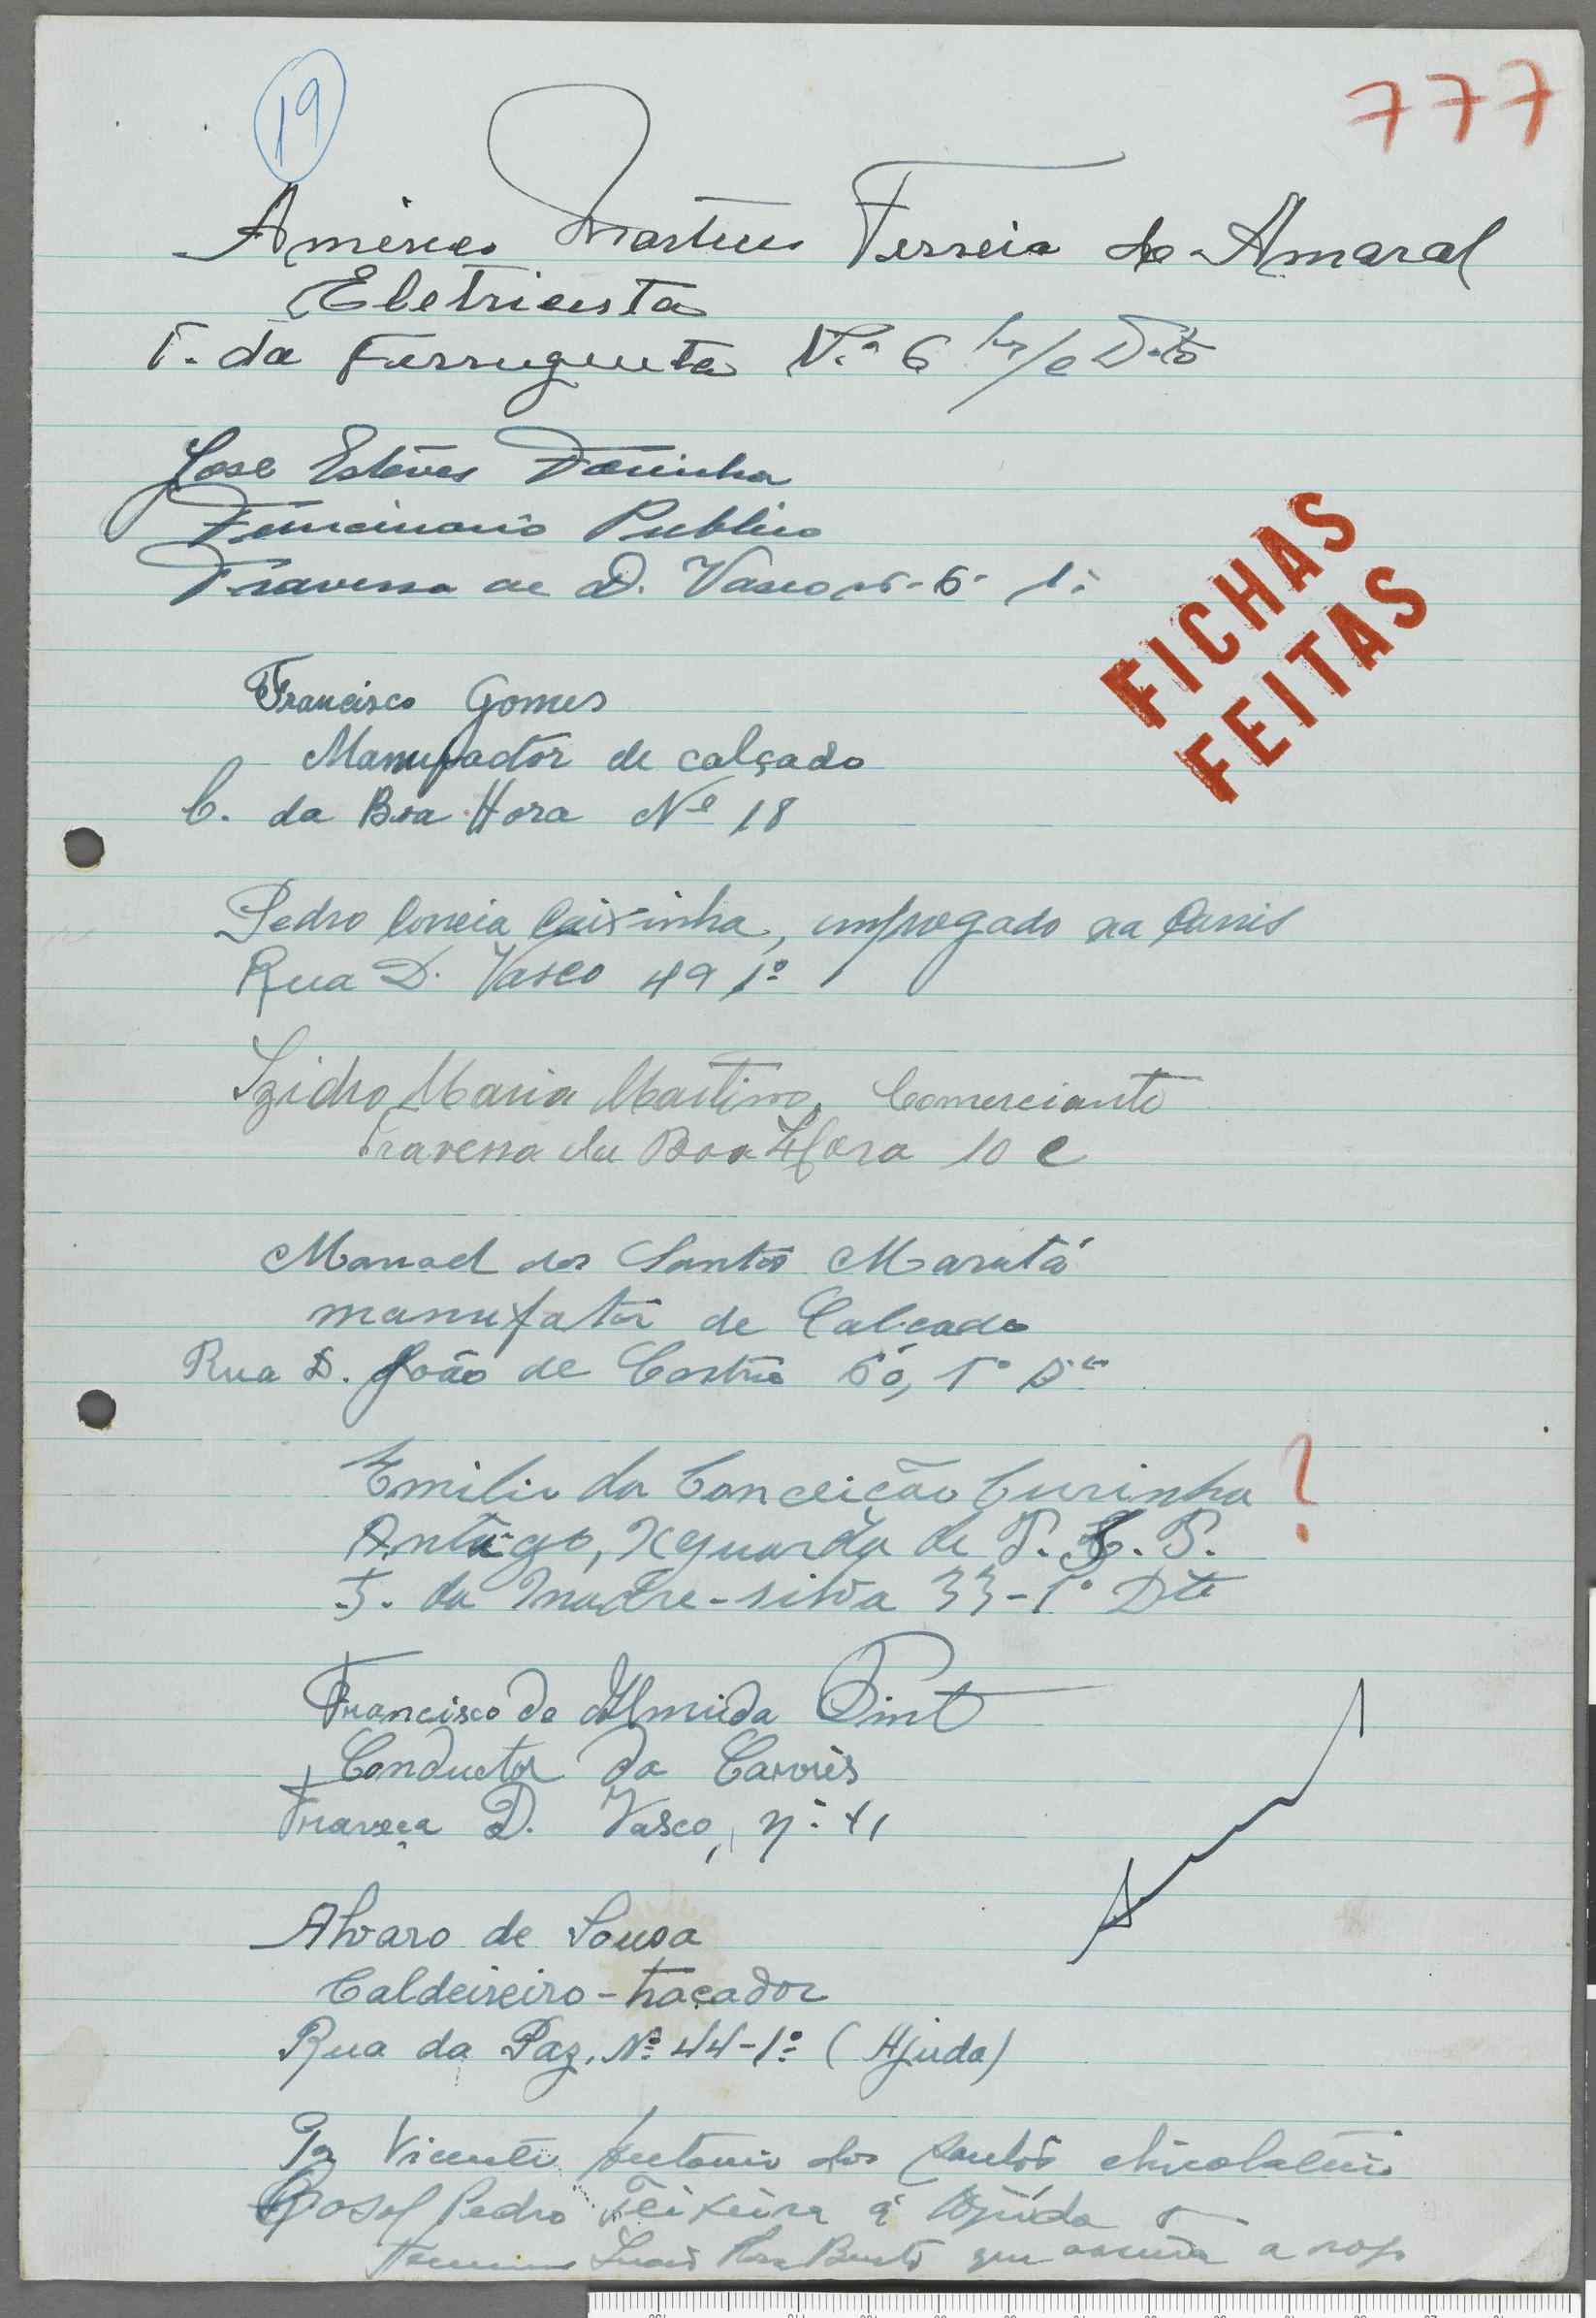 19
777
Américo Martins Ferreia do Amaral
Eletricista
T. da Ferrugenta N.º 6 r/c D.to
José Estêves Farinha
Funcinario Publico
Travessa de D. Vasco 1º
FICHAS
FEITAS
Francisco Gomes
Manufactor de calçado
C. da Boa Hora Nº 18
Pedro Correia Caixinha, empregado na Carris
Rua D. Vasco 49 1º
Izidro Maria Martins, Comerciante
Travessa da Boa Hora 10 C
Manoel dos Santos Maratá
manufator de Calcado
Rua D. João de Castro 1º
Emilio da Conceição Curinha ?
Antigo, guarda de P. S. P.
T. da Madre-silva 33-1º Dto
Francisco de Almeida Pint
Conductor da Carris
Traveça D. Vasco, nº 41
Alvaro de Sousa
Caldeireiro-traçador
Rua da Paz, Nº 44-1º (Ajuda)
Vicente Antonio dos Santos
Pedro Teixeira á Ajuda
que a rogo